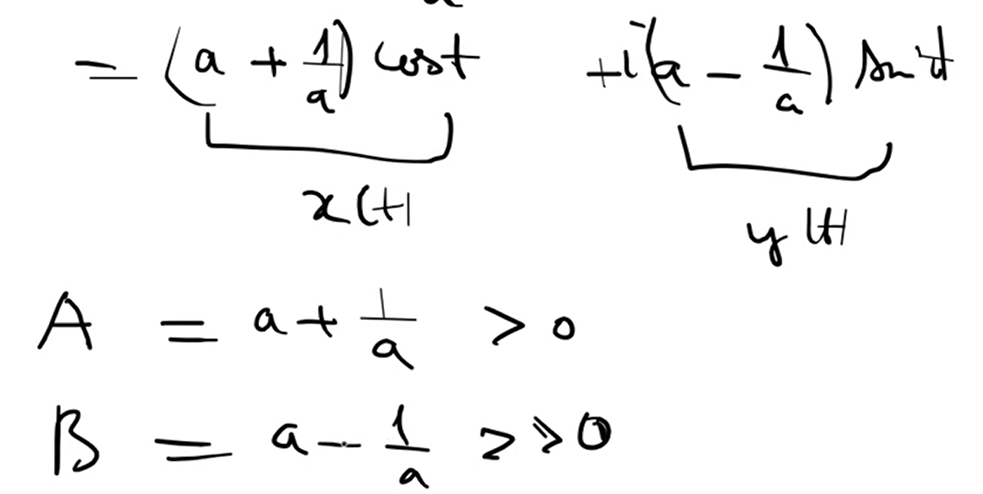 = (a + 1/a) cost + i(a - 1/a) sint
x(t) y(t)
A = a + 1/a > 0
B = a - 1/a > > 0